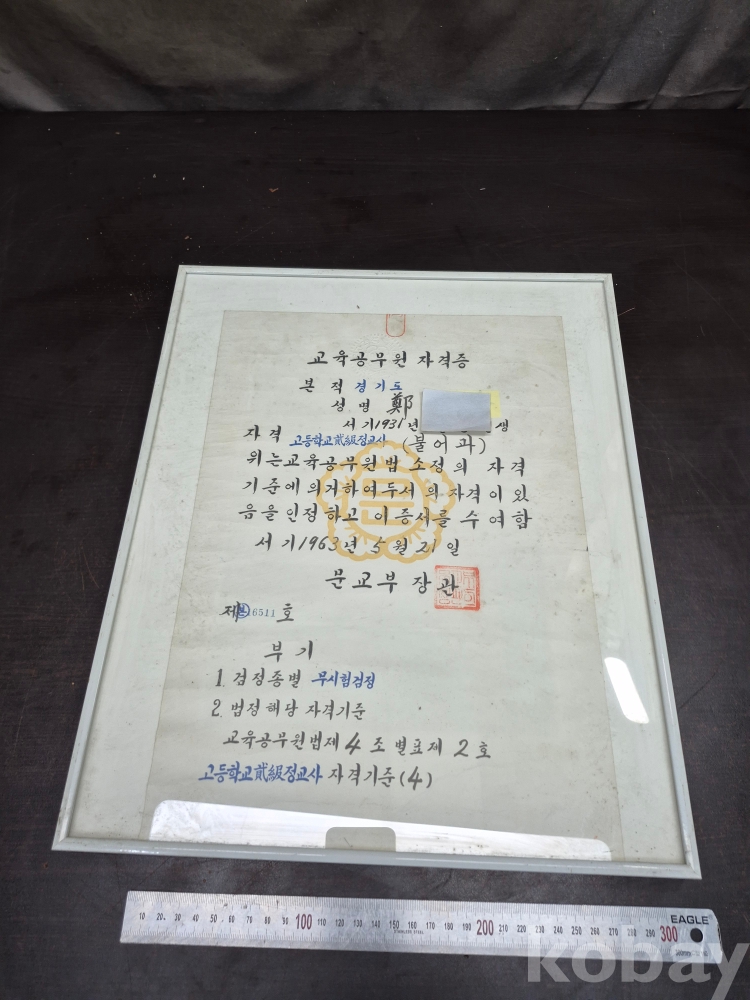 교육공무원 자격증
본 적 경기도
성 명 鄭
서기 1931년 생
자격 고등학교 貳級정교사 (불어과)
위는 교육공무원법 소정의 자격
기준에 의거하여 두서의 자격이 있
음을 인정하고 이 증서를 수여함
서기 1963년 5월 21일
문교부 장관
제 16511 호
부기
1. 검정종별 무시험검정
2. 법정해당 자격기준
교육공무원법 제 4 조 별표 제 2 호
고등학교 貳級정교사 자격기준 (4)
10 20 30 40 50 60 70 80 90 100 110 120 130 140 150 160 170 180 190 200 210 220 230 240 250 260 270 280 290 300
EAGLE
STAINLESS STEEL
kobay